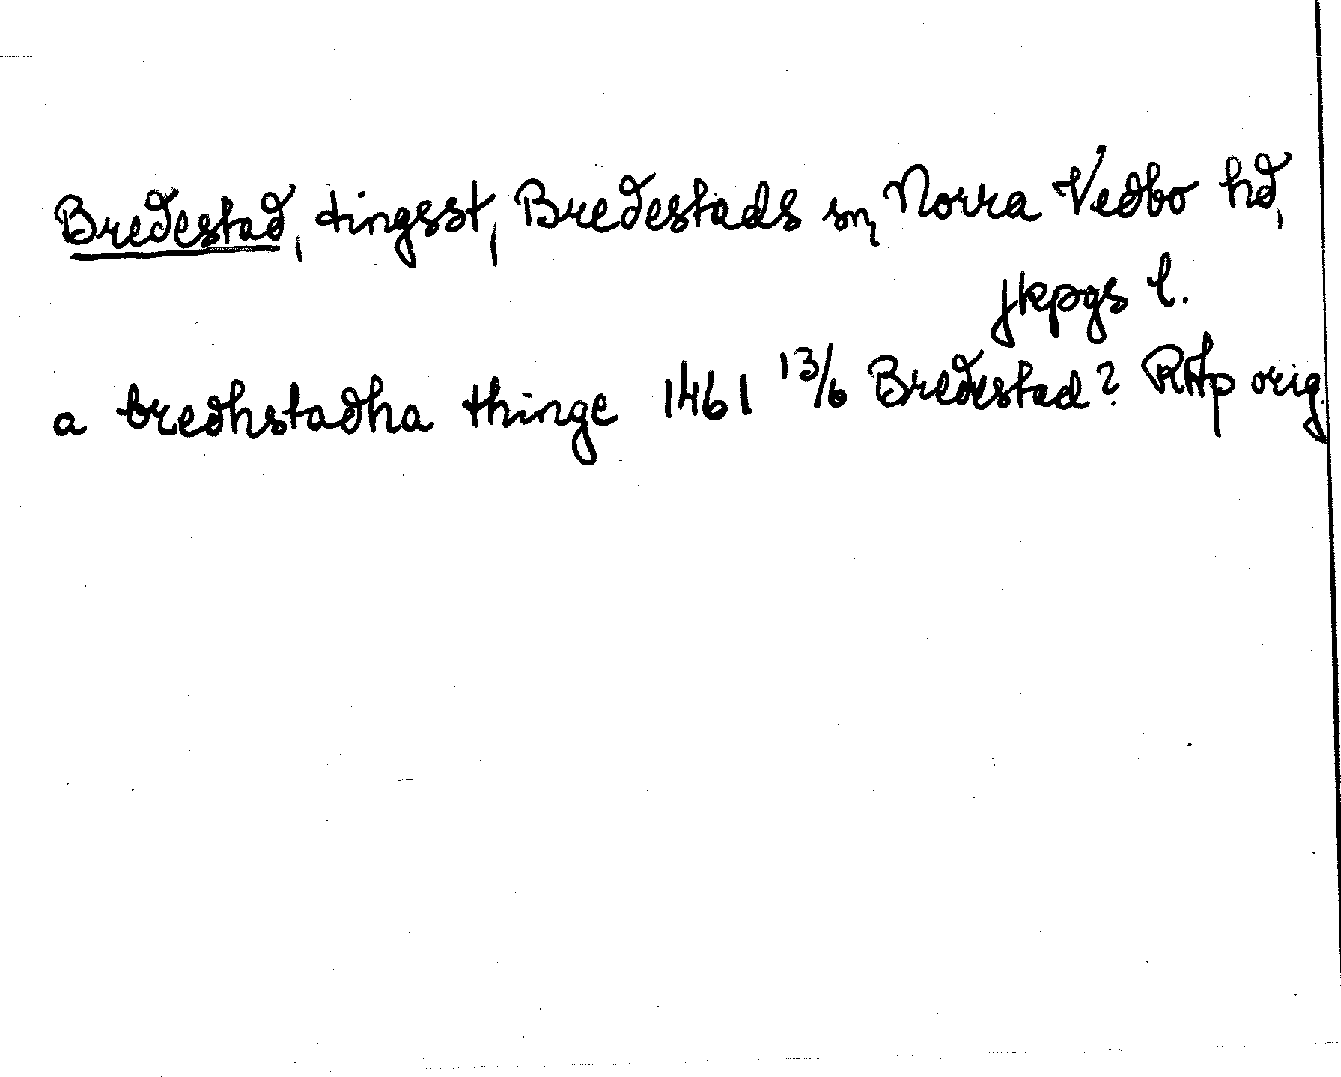 Bredestad, tingsst, Bredestads sn, Norra Vedbo hd,
Jkpgs l.
a bredhstadha thinge 1461 13/6 Bredestad? RAp orig